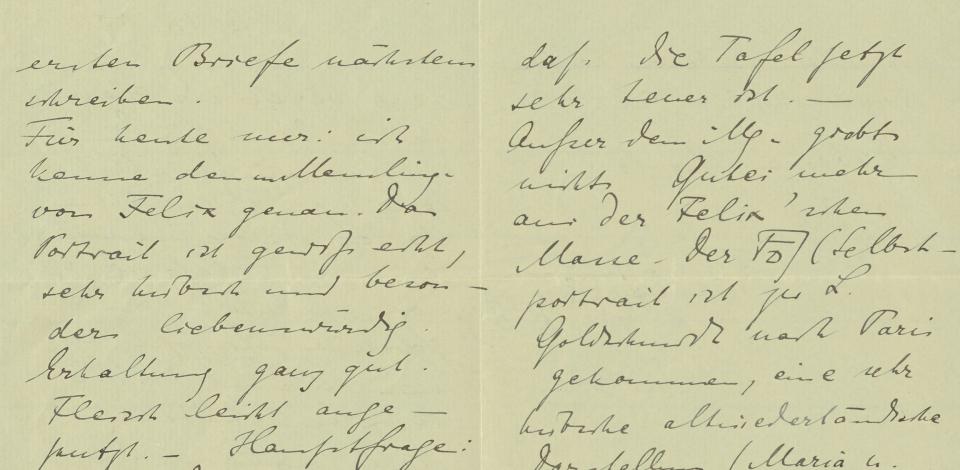 ersten Briefe nächstens
schreiben.
Für heute nur: ich
kenne den Memling
von Felix genau. Das
Portrait ist gewiß echt,
sehr hübsch und beson-
ders liebenswürdig.
Erhaltung ganz gut.
Fleisch leicht ange-
putzt. – Hauptfrage:
daß die Tafel jetzt
sehr teuer ist. –
Außer dem Mg. giebts
nichts Gutes mehr
aus der Felix'schen
Masse. Der (Selbst-
portrait ist zu L.
Goldschmidt nach Paris
gekommen, eine sehr
hübsche altniederländische
Darstellung (Maria u.